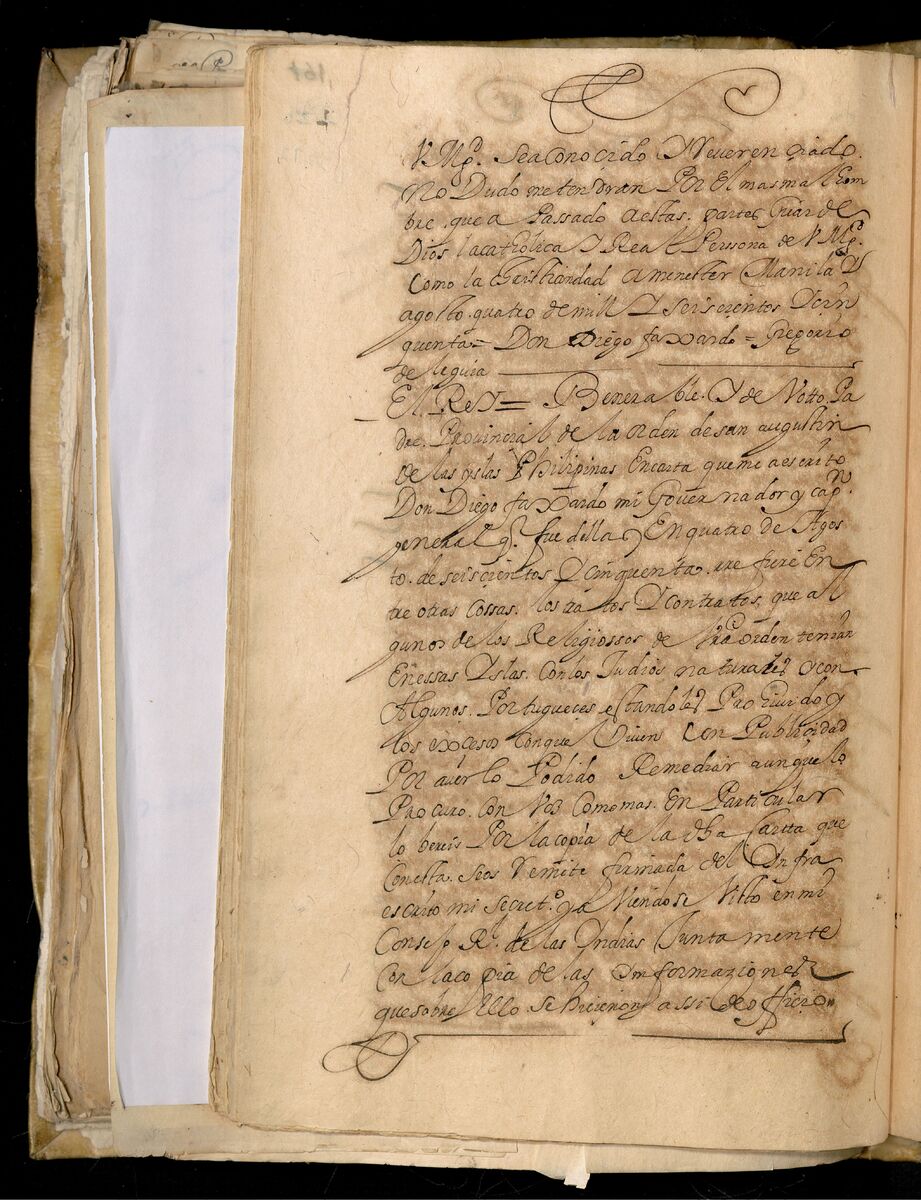 V Mgᵈ. Sea Conocido Y Reverenciado.
No Dudo me tendran Por El mas mal hom
bre. que a Passado a estas. partes Guarde
Dios la catholica Y Real Persona de V Mgᵈ.
Como la Christiandad A menester Manila Y
agosto. quatro de mill Y Seiscientos Y cin
quenta = Don Diego faxardo = Gregorio
de leguia
El ReY = Benerable. Y de Votto. Pa
dre. Provincial de la orden de san augustin
de las yslas Philipinas En carta que me a escrito
Don Diego faxardo mi Governador y capⁿ.
general q̃. fue dellas En quatro de Agos
to. de seiscientos Y cinquenta. refiere En
tre otras cossas. los tratos Y contratos, que al
gunos de los Religiossos de Vrã orden tenian
En essas Yslas. Con los Judios naturales y con
Algunos. Portugueces estandoles Proivido y
los excesos Con que Viven Con Publicidad
Por aver lo Podido Remediar aunque lo
Procuro. Con Vos Como mas. En Particular
lo bereis Por la copia de la dha Cartta que
Con esta. Se os Remite firmada del Infra
escrito mi Secretᵒ. ya Viendose Visto en mi
Consejo R. de las Yndias Juntamente
Con la copia de las Informaziones
que sobre Ello Se hicieron assi de officio